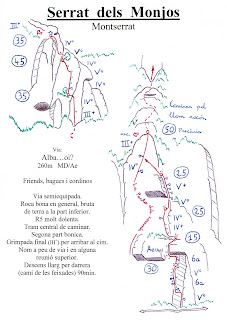 Serrat dels Monjos
Montserrat
III°
35
45
35
IV°
IV°
V
III°
Via:
Alba…oi?
260m MD/Ae
Friends, bagues i cordinos
Via semiequipada.
Roca bona en general, bruta
de terra a la part inferior.
R5 molt dolenta.
Tram central de caminar.
Segona part bonica.
Grimpada final (III°) per arribar al cim.
Nom a peu de via i en alguna
reunió superior.
Descens llarg per darrera
(camí de les feixades) 90min.
50
III°
25
V
V+
IV°
25
V
IV°
30
15
6a
V+
6a